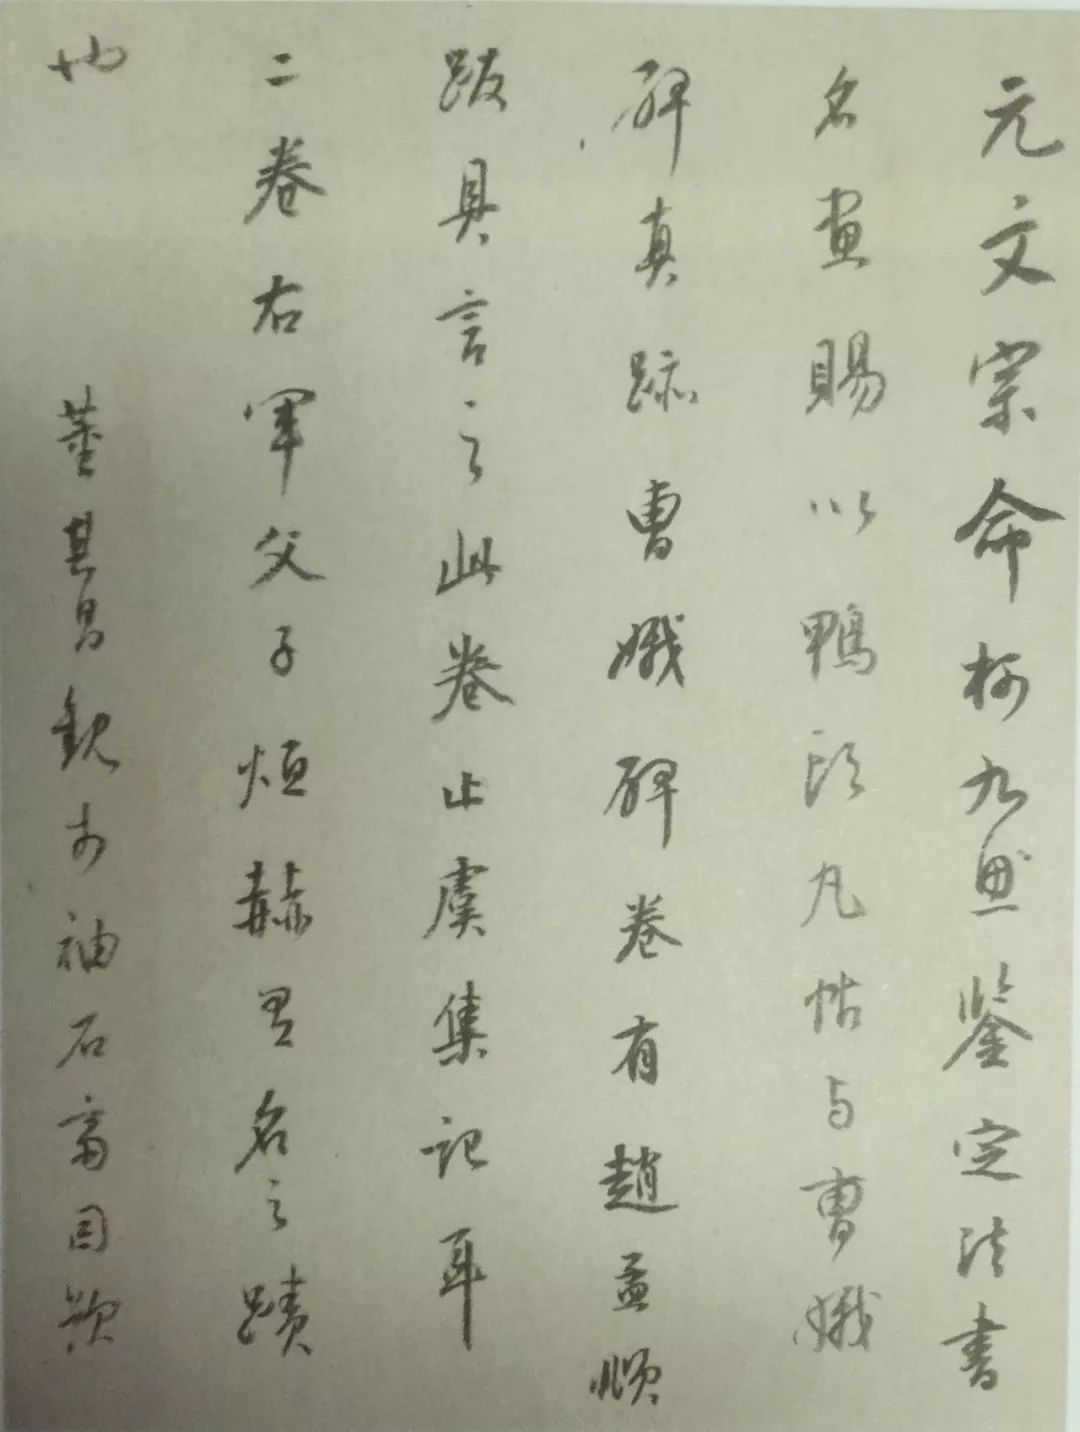 元文宗命柯九思鉴定法書
名畫賜以鴨頭丸帖与曹娥
碑真跡曹娥碑卷有趙孟頫
跋具言之此卷止虞集記耳
二卷右軍父子烜赫有名之蹟
也
董其昌觀于袖石斋因題